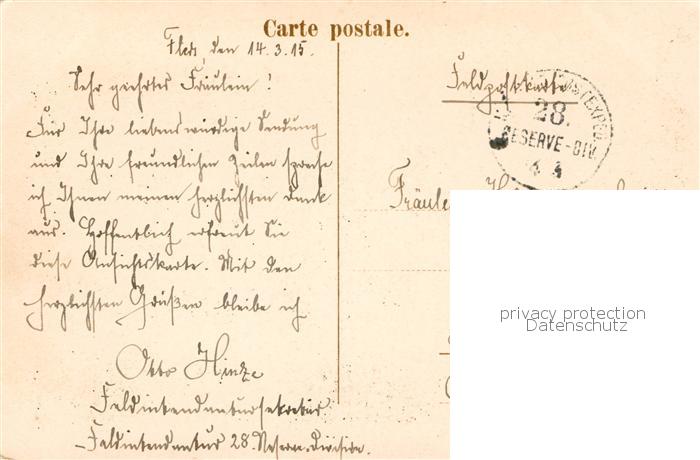 Carte postale.
den 14.3.15.
Sehr geehrtes Fräulein!
Für Ihre liebenswürdige Sendung
und Ihre freundlichen Zeilen spreche
ich Ihnen meinen herzlichsten Dank
aus. Hoffentlich erfreut Sie
diese Ansichtskarte. Mit den
herzlichsten Grüßen bleibe ich
Otto Hinze
Feldintendantursekretär
Feldintendantur 28. Reserve-Division.
Feldpostkarte
28.
RESERVE-DIV.
privacy protection
Datenschutz